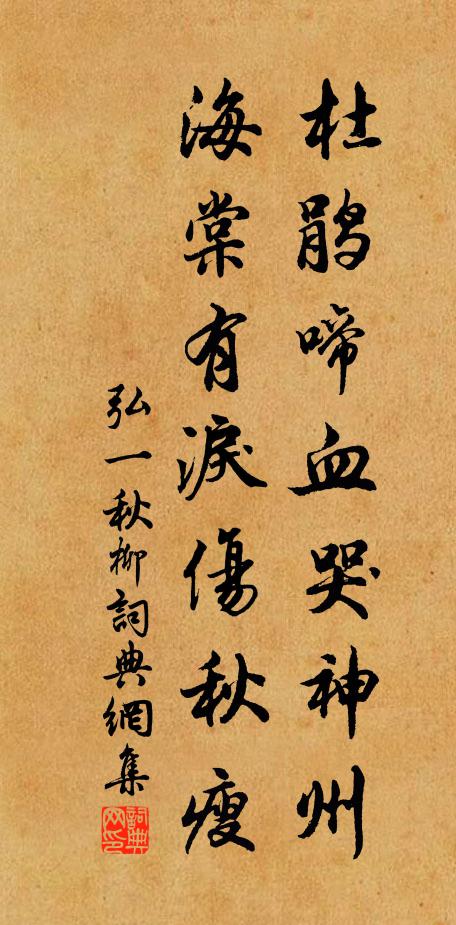 杜鹃啼血哭神州
海棠有淚傷秋瘦
弘一秋柳詞典網集
詞典网印